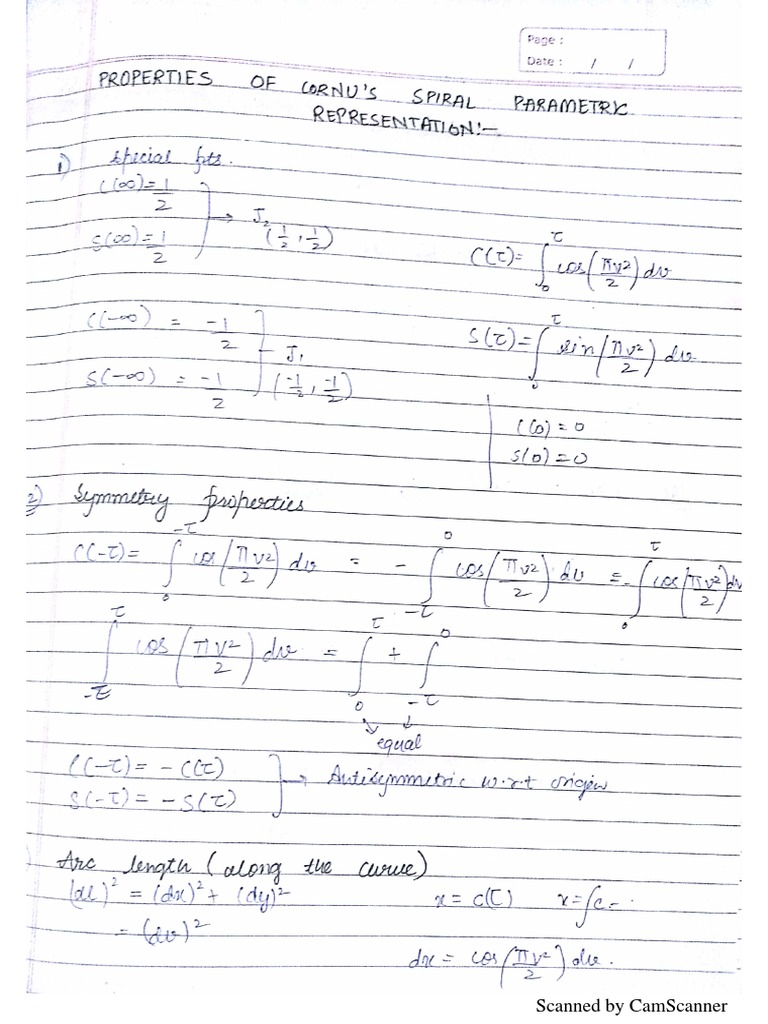 Page :
Date : / /
PROPERTIES OF CORNU'S SPIRAL PARAMETRIC
REPRESENTATION:—
1) Special pts.
C(∞)=1/2
S(∞)=1/2 } → J₂ (1/2, 1/2)
C(τ)= ∫₀^τ cos(πv²/2) dv
C(-∞) = -1/2
S(-∞) = -1/2 } – J₁ (-1/2, -1/2)
S(τ)= ∫₀^τ sin(πv²/2) dv
C(0)=0
S(0)=0
2) Symmetry properties
C(-τ)= ∫₀^-τ cos(πv²/2) dv = - ∫_-τ^0 cos(πv²/2) dv = - ∫₀^τ cos(πv²/2) dv
∫_-τ^τ cos(πv²/2) dv = ∫₀^τ + ∫_-τ^0
equal
C(-τ)= -C(τ)
S(-τ)= -S(τ) } → Antisymmetric w.r.t origin
Arc length (along the curve)
(dl)² = (dx)² + (dy)² x = C(τ) x=∫c-·
= (dv)²
dx = cos(πv²/2) dv.
Scanned by CamScanner